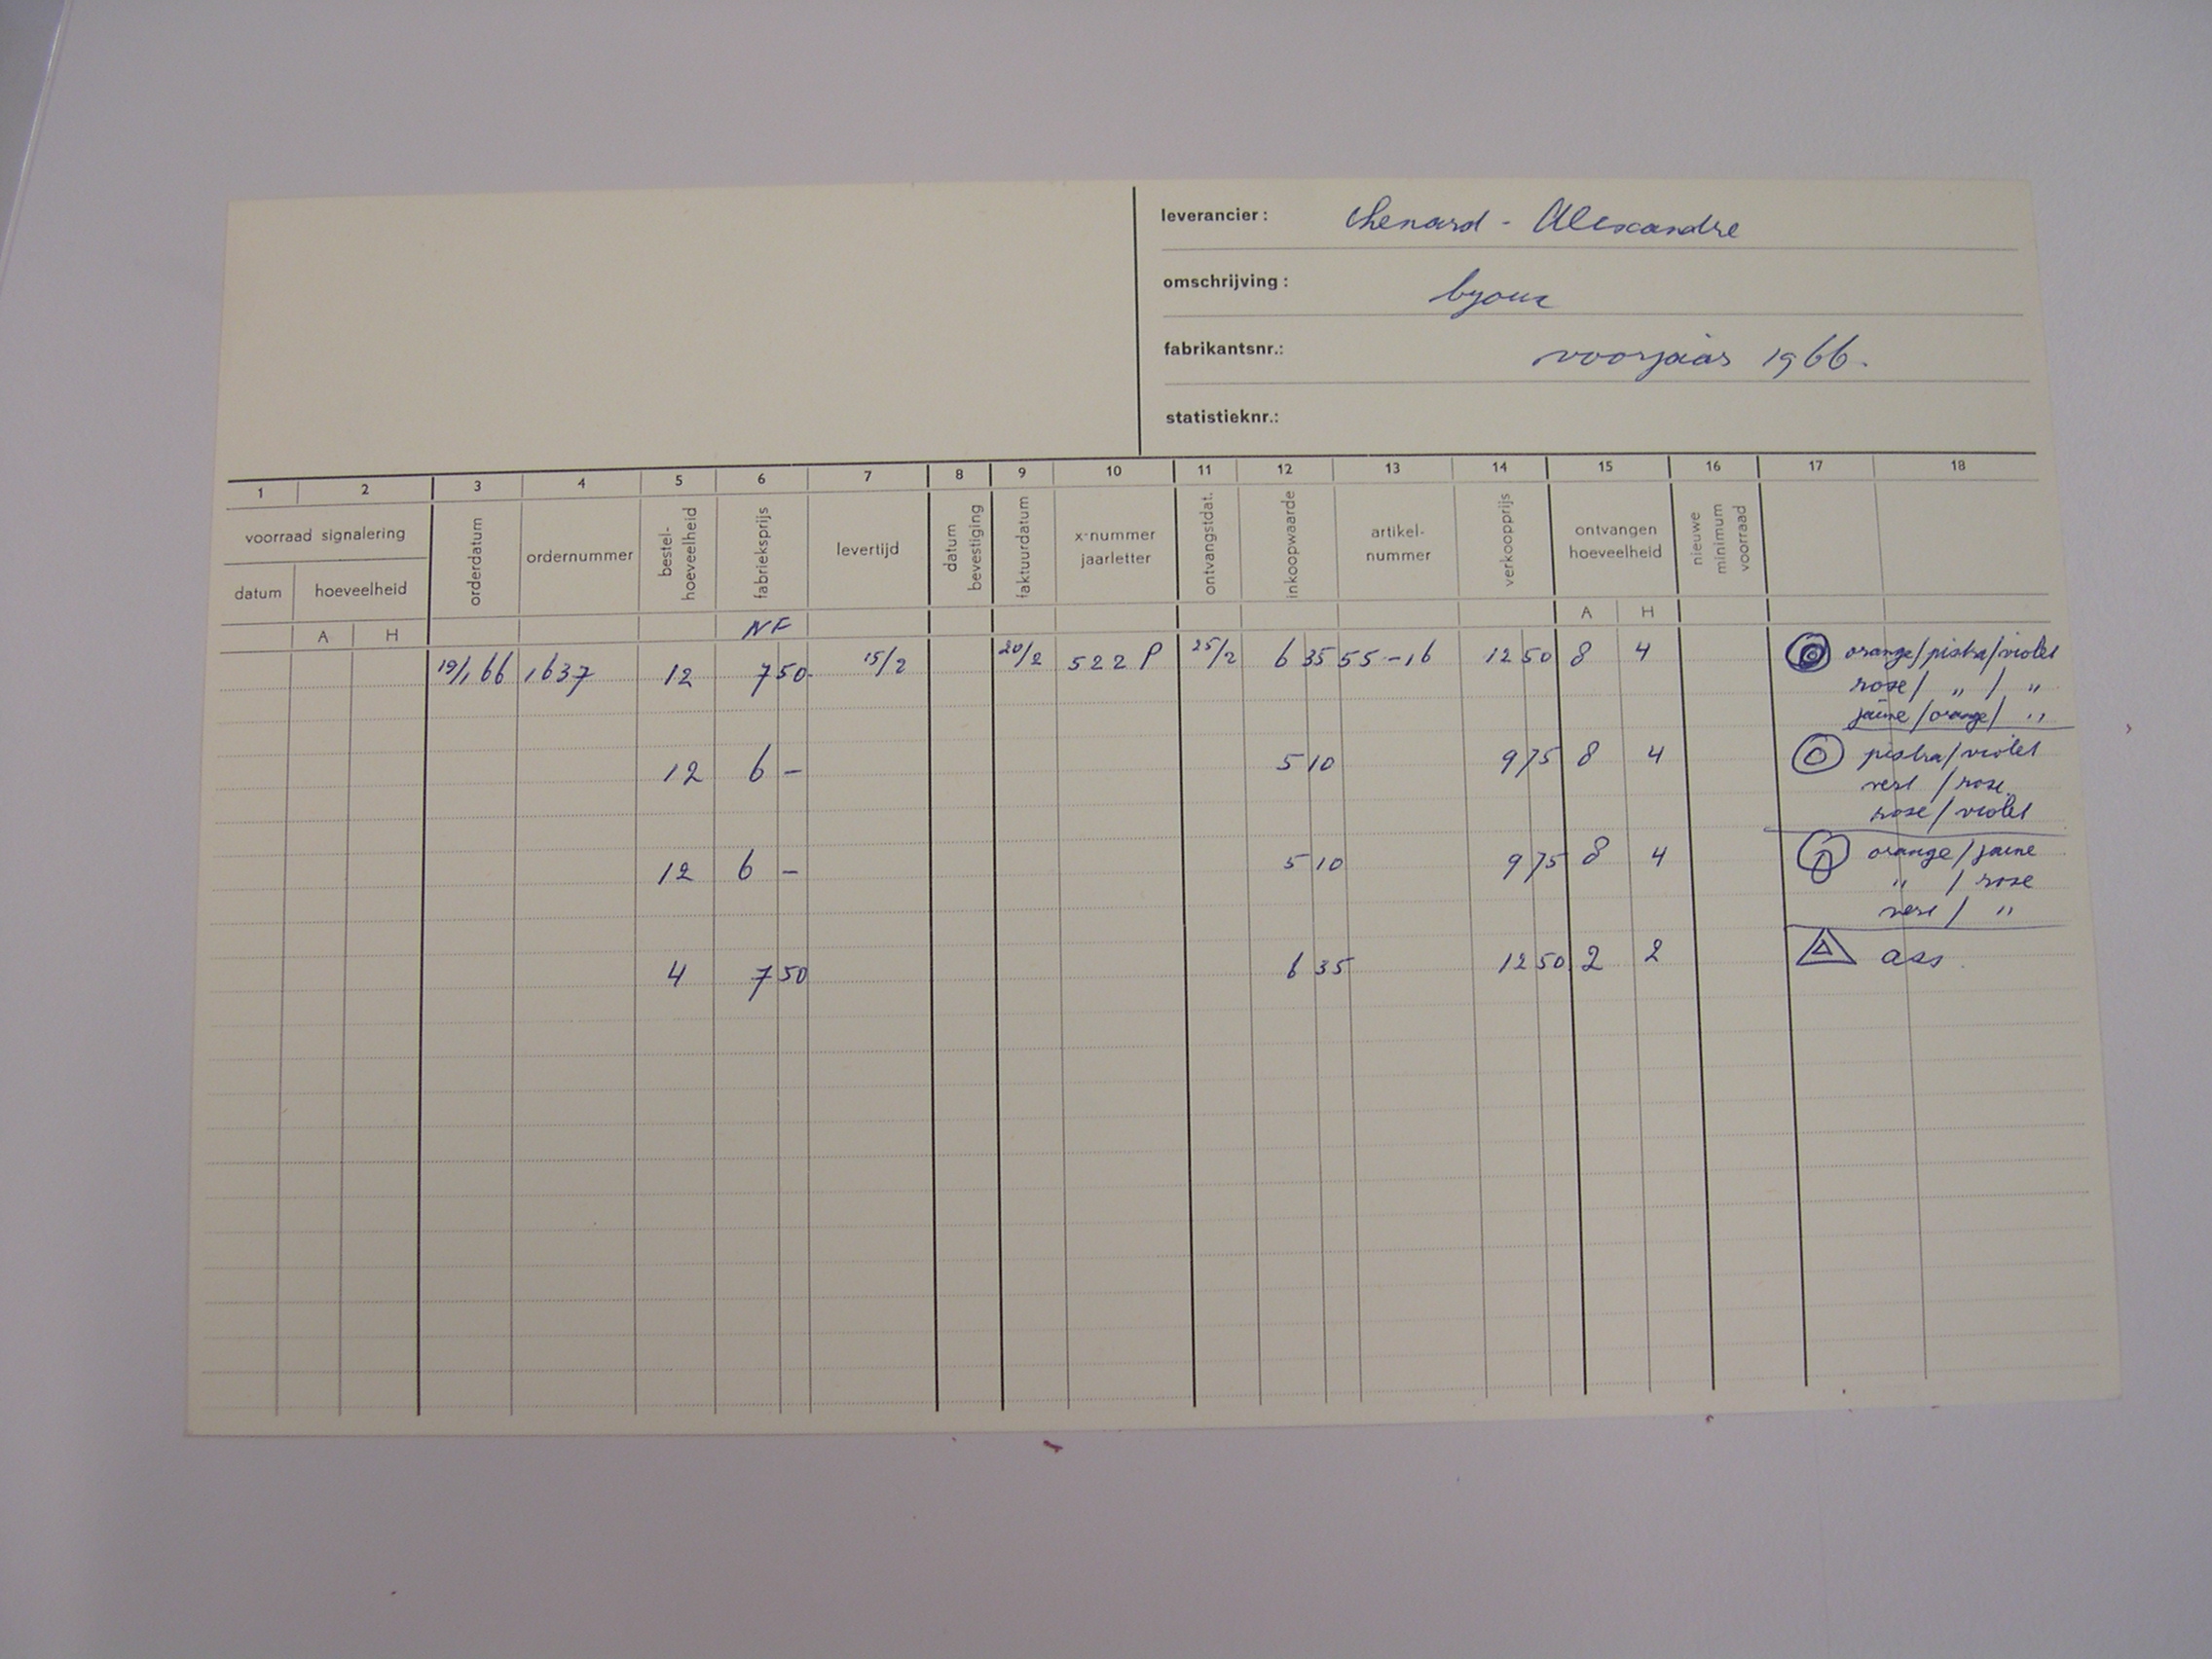 leverancier: Chenard - Alexandre
omschrijving: byoux
fabrikantsnr.: voorjaar 1966.
statistieknr.:
1 2 3 4 5 6 7 8 9 10 11 12 13 14 15 16 17 18
voorraad signalering
datum hoeveelheid
A H
orderdatum
ordernummer
bestel-
hoeveelheid
fabrieksprijs
NF
levertijd
datum
bevestiging
faktuurdatum
x-nummer
jaarletter
ontvangstdat.
inkoopwaarde
artikel-
nummer
verkoopprijs
ontvangen
hoeveelheid
A H
nieuwe
minimum
voorraad
19/1 66 1637 12 7 50 15/2 20/2 522 P 25/2 6 35 55-16 12 50 8 4 orange/pistra/violet
rose / " / "
jaune/orange/ "
12 6 - 5 10 9 75 8 4 pistra/violet
vert / rose
rose / violet
12 6 - 5 10 9 75 8 4 orange / jaune
" / rose
vert / "
4 7 50 6 35 12 50 2 2 ass.